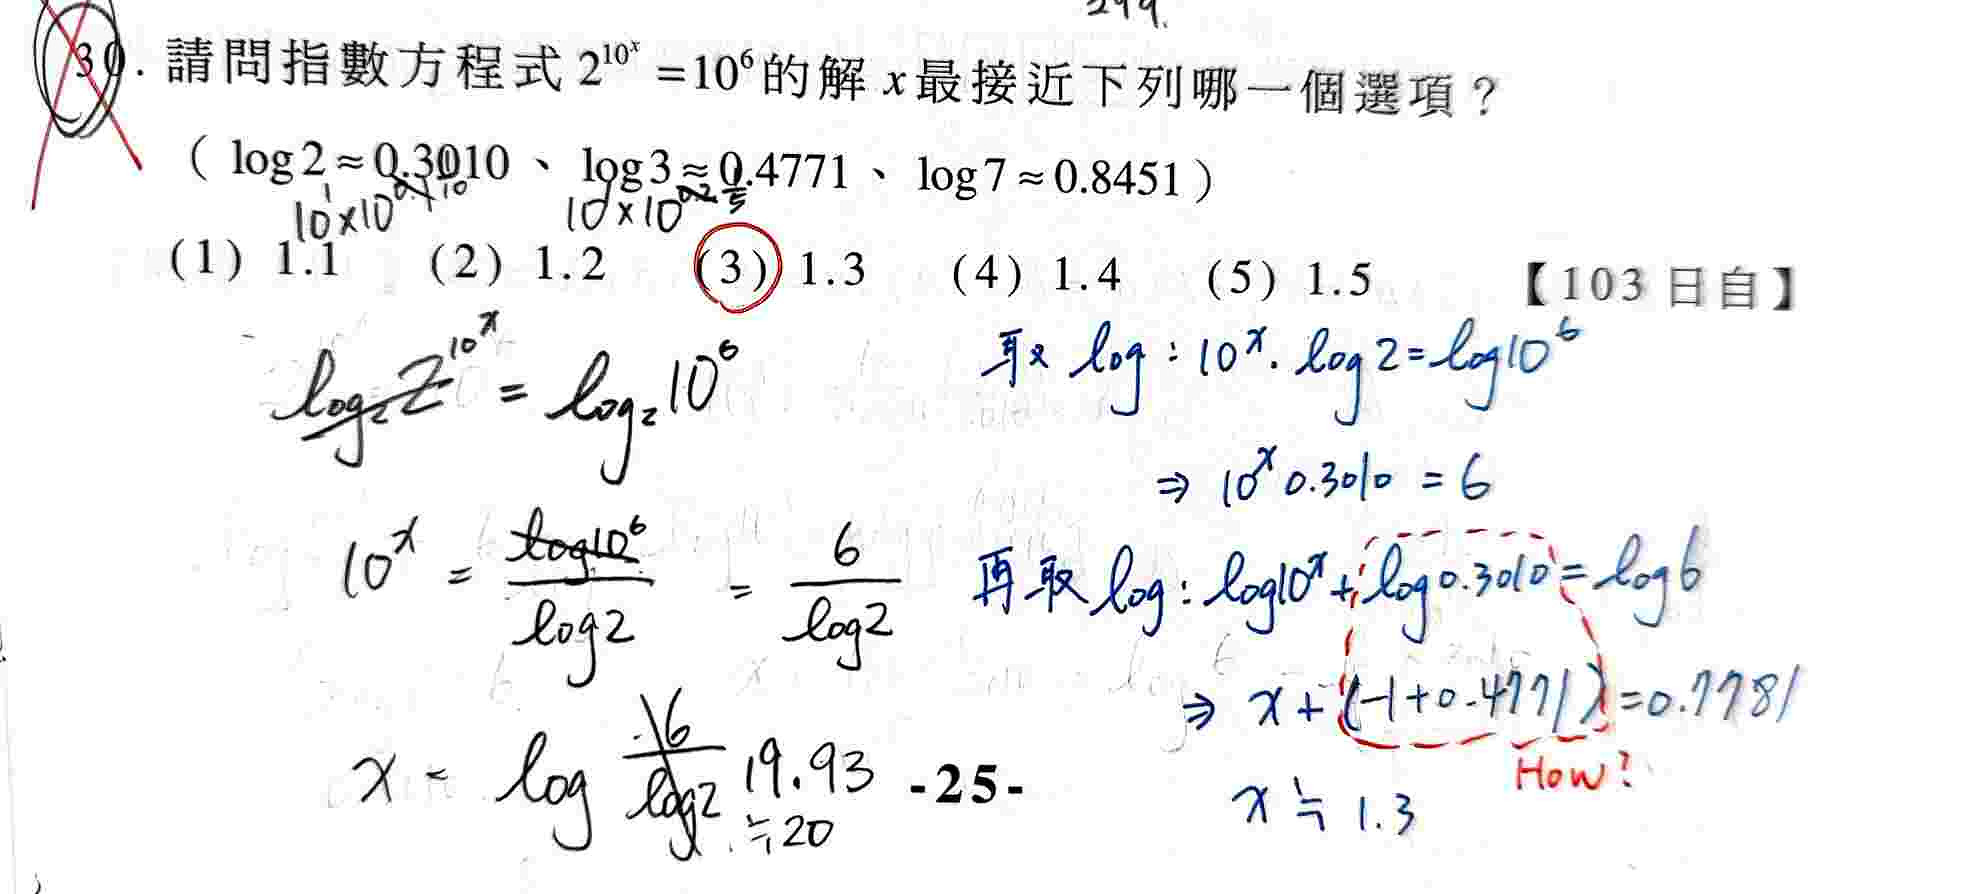 299.
30. 請問指數方程式 2^{10^x} = 10^6 的解 x 最接近下列哪一個選項？
( log 2 ≈ 0.3010 、 log 3 ≈ 0.4771 、 log 7 ≈ 0.8451 )
10^1 × 10^{0.1}
10 × 10^{0.2}
(1) 1.1 (2) 1.2 (3) 1.3 (4) 1.4 (5) 1.5 【103 日自】
log_2 2^{10^x} = log_2 10^6
10^x = log10^6 / log2 = 6 / log2
x = log 6 / log2 19.93
≒20
取 log : 10^x · log 2 = log10^6
⇒ 10^x 0.3010 = 6
再取 log : log10^x + log 0.3010 = log 6
⇒ x + (-1+0.4771) = 0.7781
How?
x ≒ 1.3
-25-